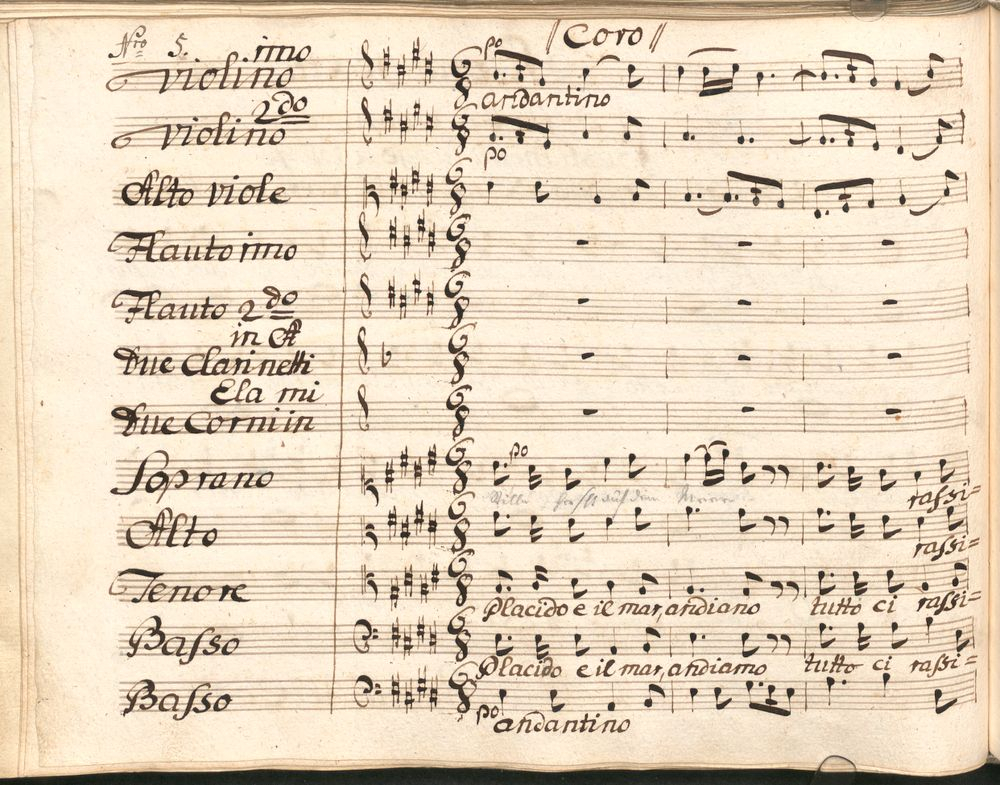 Nro 5. // Coro //
violino imo po
andantino
violino 2do po
Alto viole
Flauto imo
Flauto 2do
in A
Due Clarinetti
Ela mi
Due Corni in
Soprano po
auf dem rassi=
Alto rassi=
Tenore Placido e il mar, andiano tutto ci rassi=
Basso Placido e il mar, andiamo tutto ci rassi=
Basso po andantino